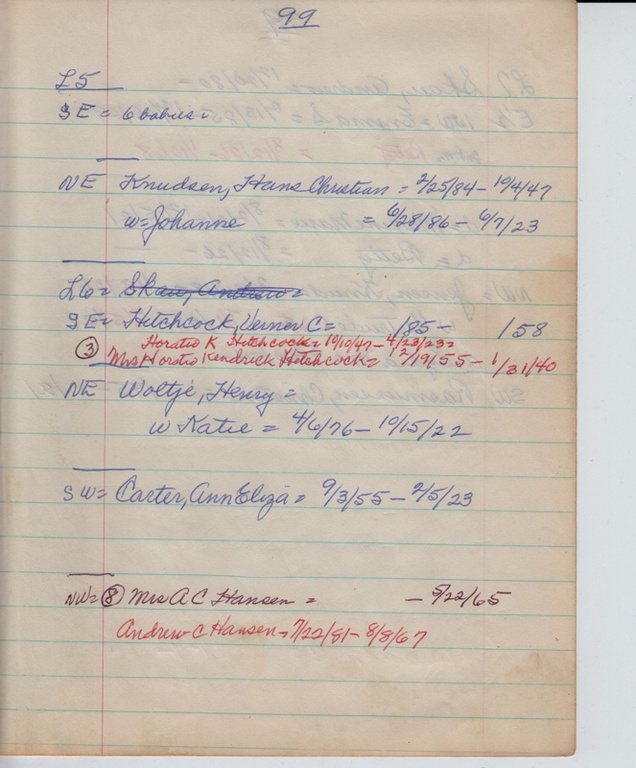 99
L5
SE = 6 babies.
NE Knudsen, Hans Christian = 2/25/84 - 10/4/47
w = Johanne = 6/28/86 - 6/7/23
L6 = Skow, Andrew =
SE = Hitchcock, Verner C = /85 - /58
Horatio K Hitchcock = 10/10/47 - 4/23/23 =
③ Mrs Horatio Kendrick Hitchcock = 12/19/55 - 1/31/40
NE Woltje, Henry =
w Katie = 4/6/76 - 10/15/22
SW = Carter, Ann Eliza = 9/3/55 - 2/5/23
NW = ⑧ Mrs A C Hansen = - 5/22/65
Andrew C Hansen - 7/22/81 - 8/8/67